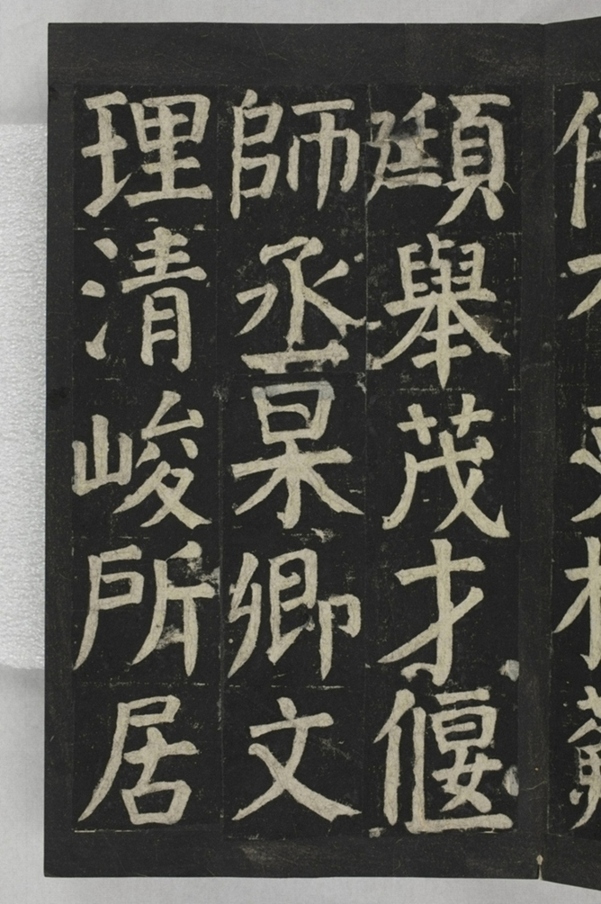 頲舉茂才偃
師丞杲卿文
理清峻所居